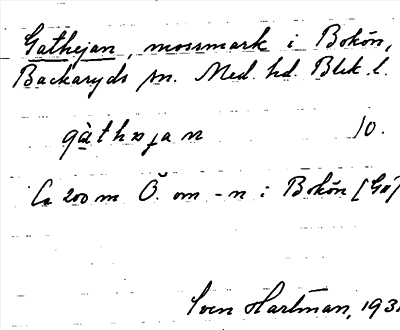 Gathejan, mossmark i Bokön,
Backaryds sn. Med. hd. Blek. l.
gàthəjan 10.
Ca 200 m Ö. om -n i Bokön [Gö]
Sven Hartman, 193